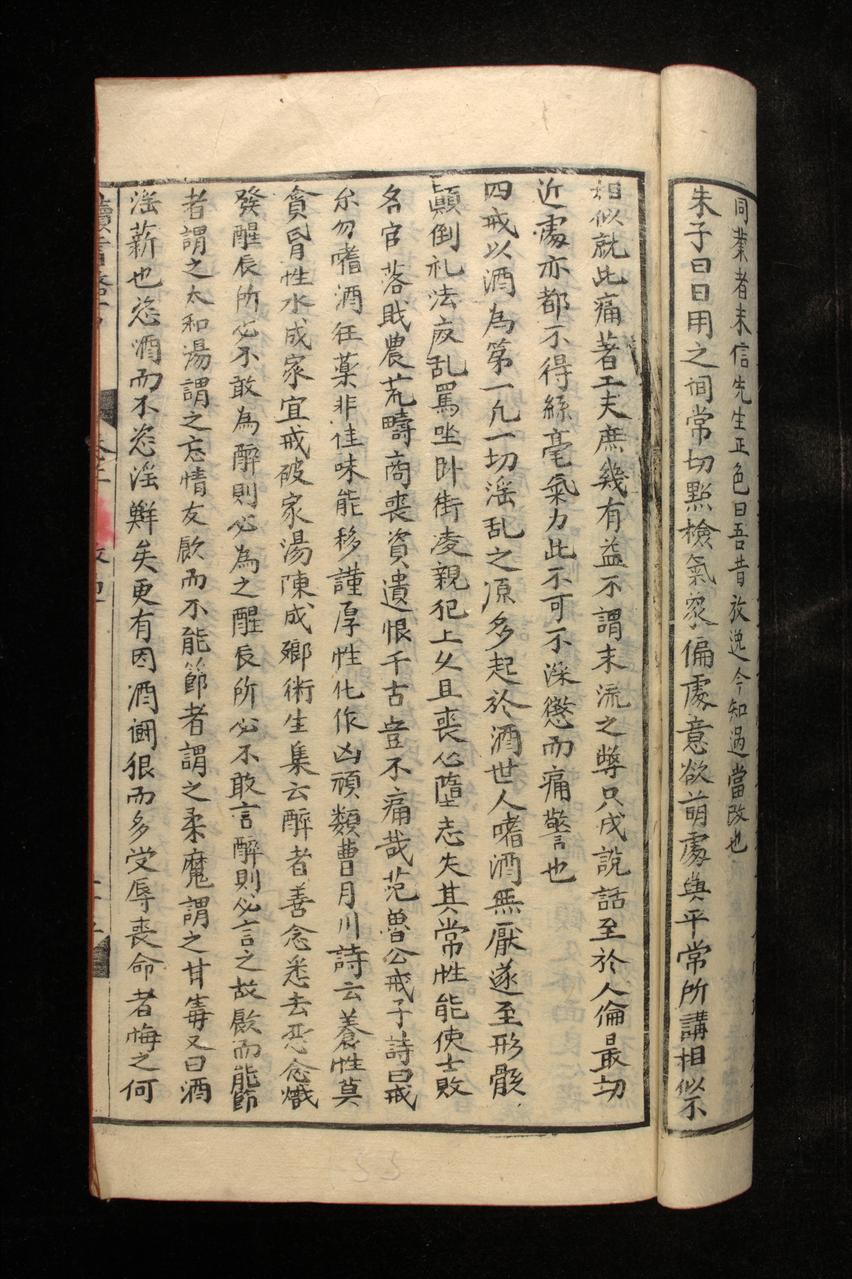 同業者未信先生正色曰吾昔放逸今知過當改也
朱子曰日用之间常切點檢氣象偏處意欲萌處與平常所講相似不
相似就此痛著工夫庶幾有益不謂末流之弊只成說話至於人倫最切
近處亦都不得絲毫氣力此不可不深懲而痛警也
四戒以酒為第一凢一切淫乱之原多起於酒世人嗜酒無厭遂至形骸
顛倒礼法廢乱罵坐卧街凌親犯上久且喪心墮志失其常性能使士敗
名官落職農荒疇商喪資遺恨千古豈不痛哉范魯公戒子詩曰戒
尔勿嗜酒狂藥非佳味能移謹厚性化作凶頑類曹月川詩云養性莫
貪昏性水成家宜戒破家湯陳成卿術生集云醉者善念悉去惡念熾
發醒辰所必不敢為醉則必為之醒辰所必不敢言醉則必言之故飲而能節
者謂之太和湯謂之忘情友飲而不能節者謂之柔魔謂之甘毒又曰酒
淫薪也恣酒而不恣淫鮮矣更有因酒鬪狠而多受辱喪命者悔之何